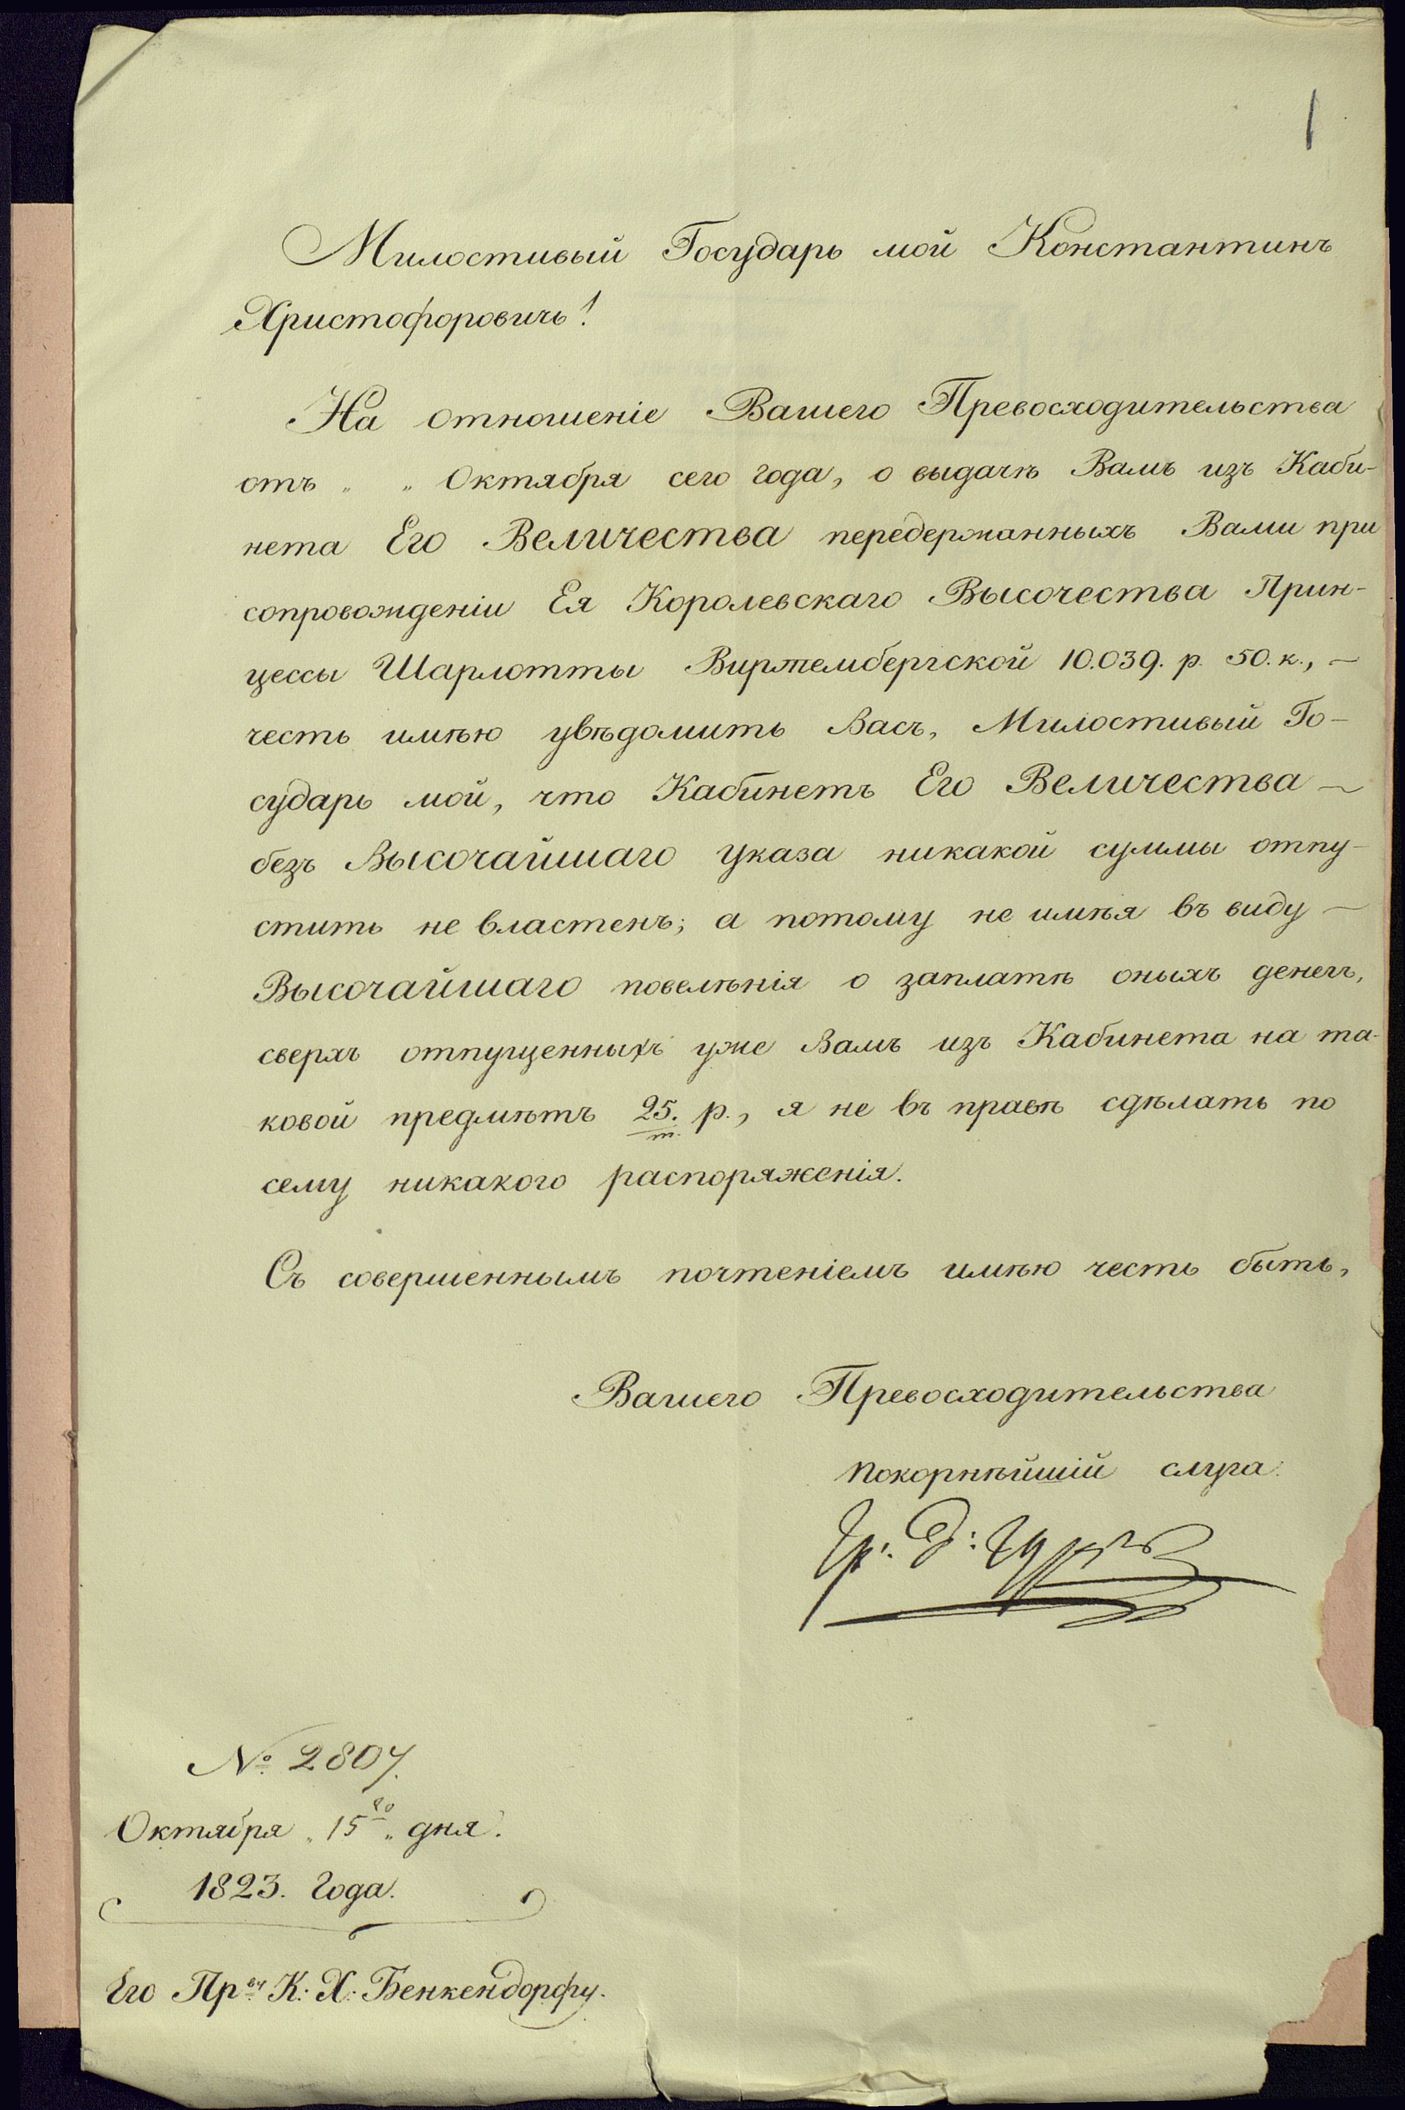 1
Милостивый Государь мой Константинъ
Христофоровичь!
На отношеніе Вашего Превосходительства
отъ „ „ Октября сего года, о выдачѣ Вамъ изъ Каби-
нета Его Величества передержанныхъ Вами при
сопровожденіи Ея Королевскаго Высочества Прин-
цессы Шарлотты Виртембергской 10.039. р. 50. к., —
честь имѣю увѣдомить Васъ, Милостивый Го-
сударь мой, что Кабинетъ Его Величества —
безъ Высочайшаго указа никакой суммы отпу-
стить не властенъ; а потому не имѣя въ виду —
Высочайшаго повелѣнія о заплатѣ оныхъ денегъ,
сверхъ отпущенныхъ уже Вамъ изъ Кабинета на та-
ковой предмѣтъ 25. т. р., я не въ правѣ сдѣлать по
сему никакого распоряженія.
Съ совершеннымъ почтеніемъ имѣю честь быть,
Вашего Превосходительства
покорнѣйшій слуга:
Гр: Д: Гурьевъ
№ 2807.
Октября „ 15го „ дня.
1823. Года.
Его Прву К: Х: Бенкендорфу.